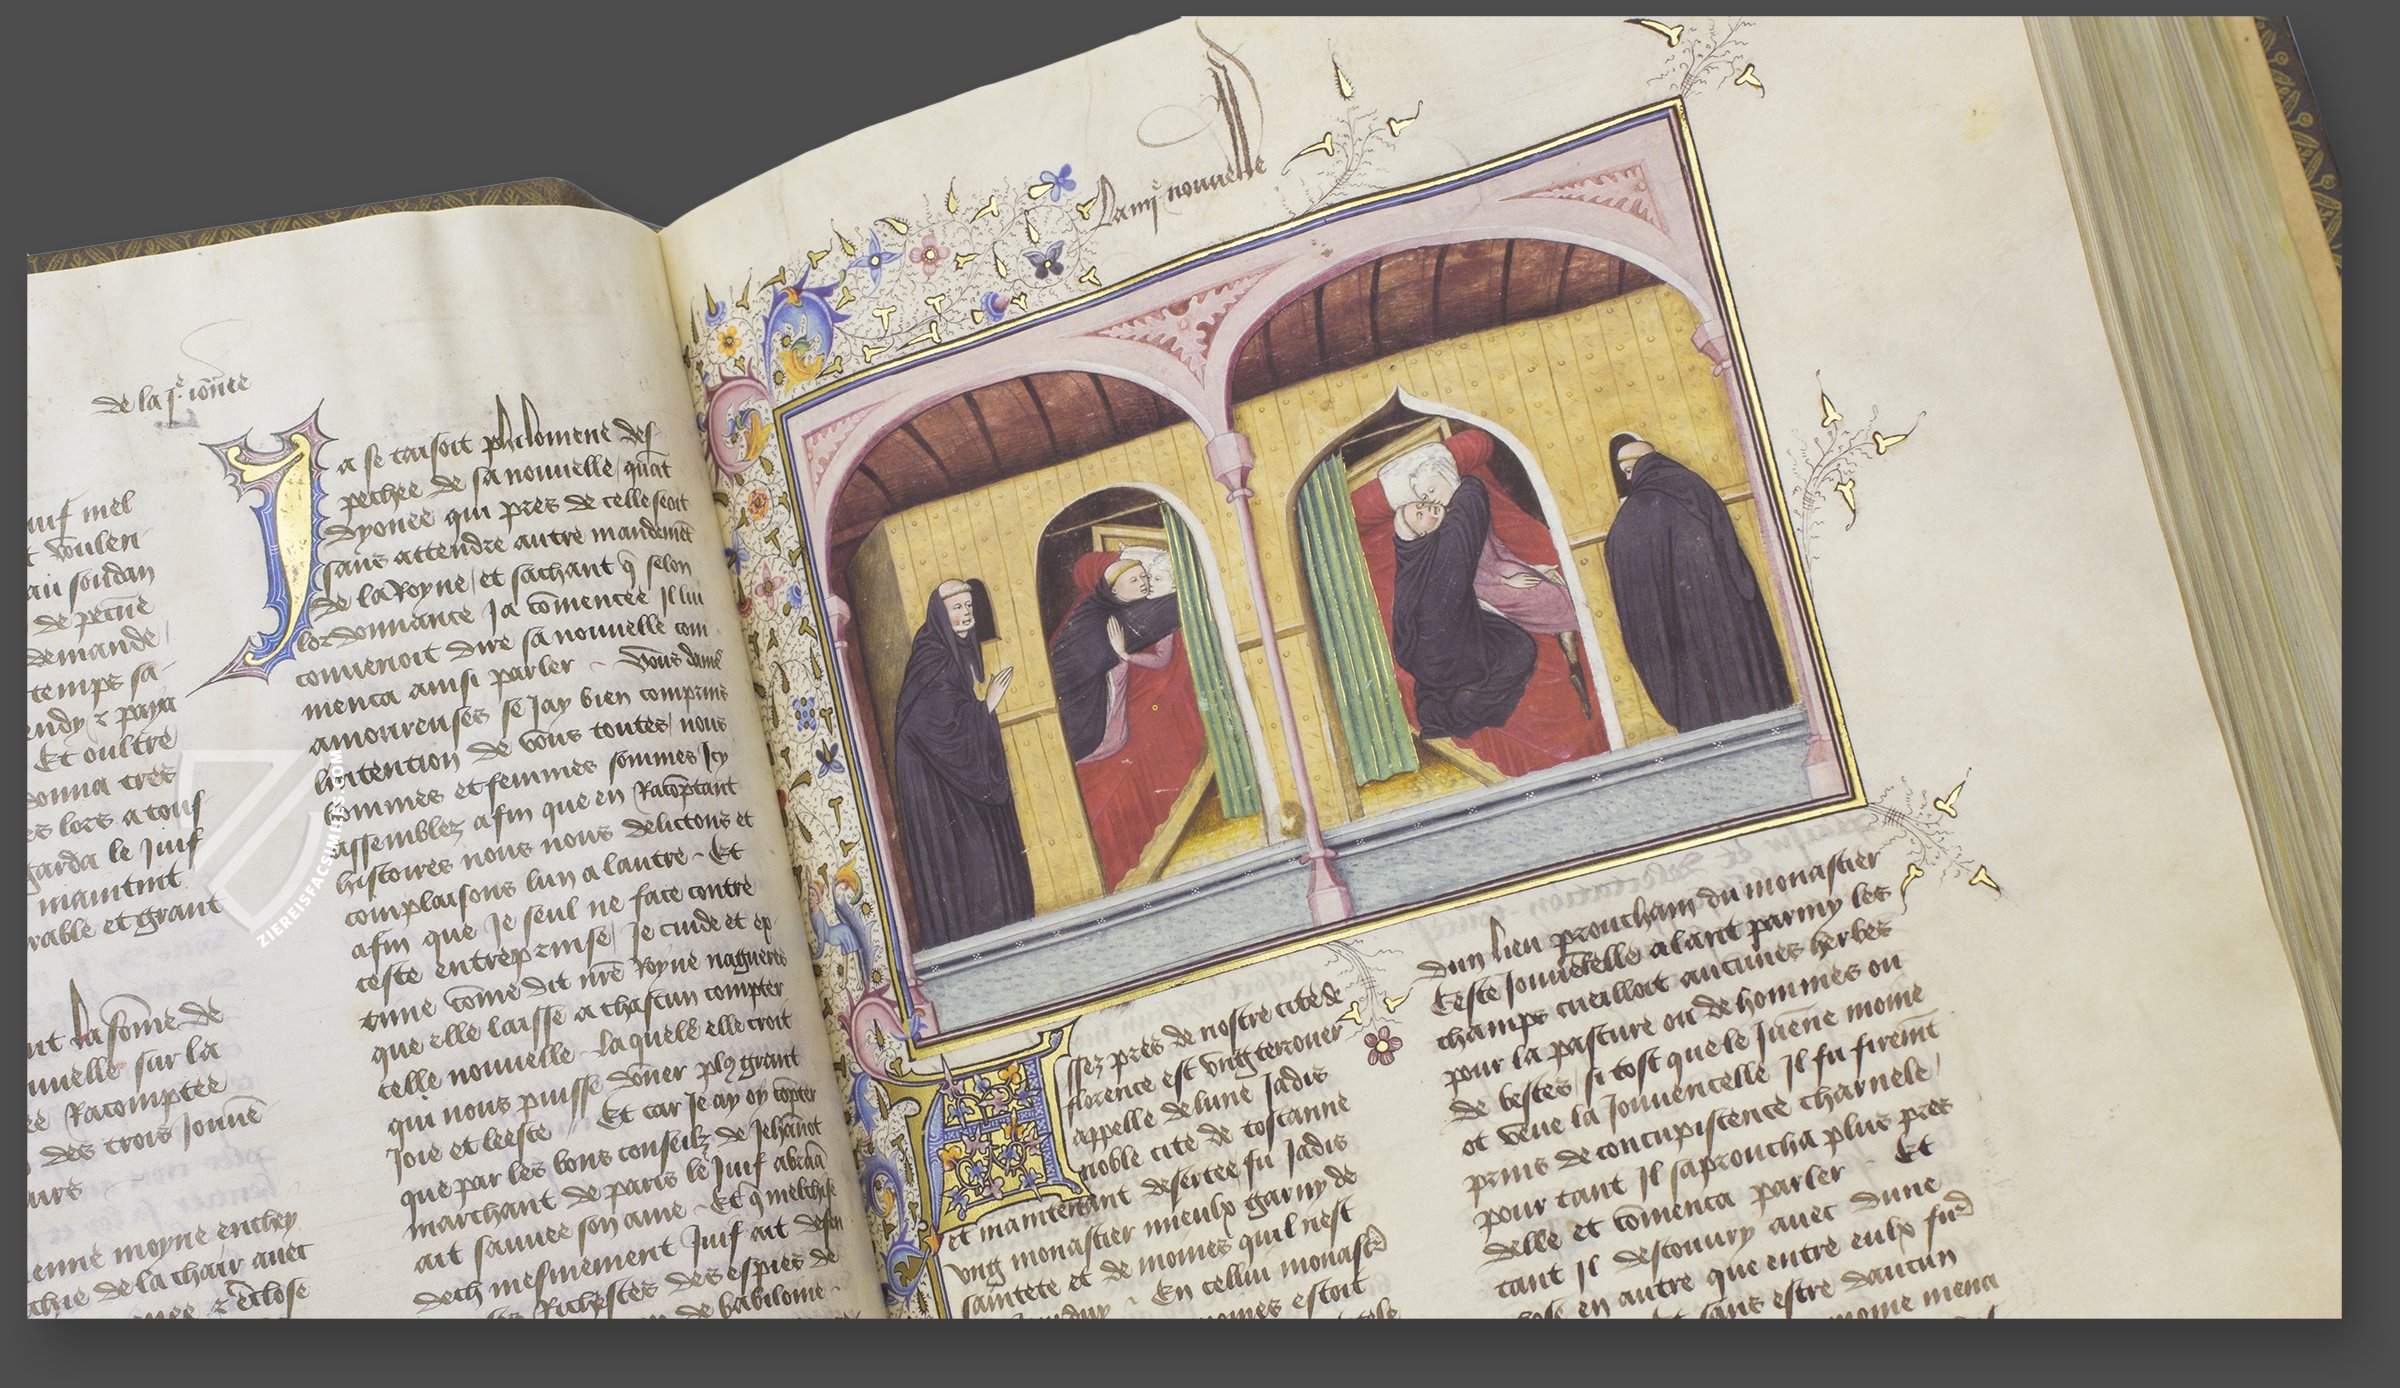 de la Ie ioñee
uif mel
t voulen
au soudan
de pecune
demande
temps sa
endy z paya
Et oultre
donna tres
es lors a tous
garda le Juif
maintint
rable et grant
nt la some de
nuelle sur la
ee Racomptee
des trois Jouve
urs
enne moyne enchey
chie de la chair avec
Ja se taisoit philomene des
pechee de sa nouvelle / quat
dyonee qui pres de celle seoit
sans attendre autre mandemet
de la Royne / et sachant q selon
lordonnance Ja comencee Il lui
convenoit dire sa nouvelle com
menca ainsi parler ~ Vous dames
amoureuses se Jay bien comprins
lintention de vous toutes / nous
hommes et femmes sommes Icy
assemblez afin que en Racoptant
histoires nous nous delictons et
complaisons lun a lautre ~ Et
afin que Je seul ne face contre
ceste entreprinse / Je cuide et ep
time come dit nre Royne nagueres
que elle laisse a chascun compter
telle nouvelle ~ laquele elle croit
qui nous puisse doner pl9 grant
Joie et leesse ~ Et car Je ay oy copter
que par les bons conseilz de Jehanot
marchant de paris le Juif abraa
ait sauvee son ame ~ Et q melchise
dech mesmement Juif ait defen
Richesses des espies de
de babilone ~
La iiije nouvelle
Assez pres de nostre cite de
florence est ung terrouer
appelle de lune Jadis
noble cite de toscanne
et maintenant desertee fu Jadis
ung monastier mieulx garny de
saintete et de moines quil nest
En cellui monast
estoit
dun lieu prouchain du monastier
Ceste Jouvecelle alant parmy les
champs cueilloit aucunes herbes
pour la pasture ou de hommes ou
de bestes / si tost que le Jaene moine
ot veue la Jouvencelle Il fu firemet
prins de concupiscence charnele /
pour tant Il saproucha plus pres
delle et comenca parler ~ Et
tant Il descouvry avec dune
chose en autre que entre eulx fu
sans estre daucun
moine mena
ZIEREISFACSIMILES.COM